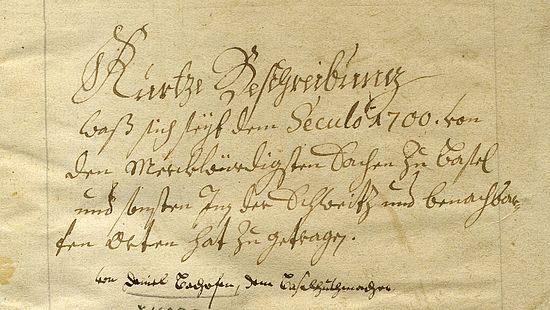 Kurtze Beschreibung
waß sich seyt dem Seculo 1700. von
den Merckwürdigsten Sachen zu Basel
und sonsten Jnn der Schweitz und benachbar-
ten Orten hat zu getragen.
von Daniel Bachofen, dem